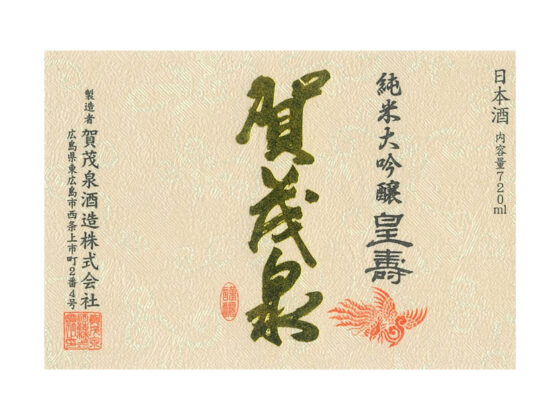 日本酒 内容量720ml
純米大吟醸 皇寿
賀茂泉
製造者 賀茂泉酒造株式会社
広島県東広島市西条上市町2番4号